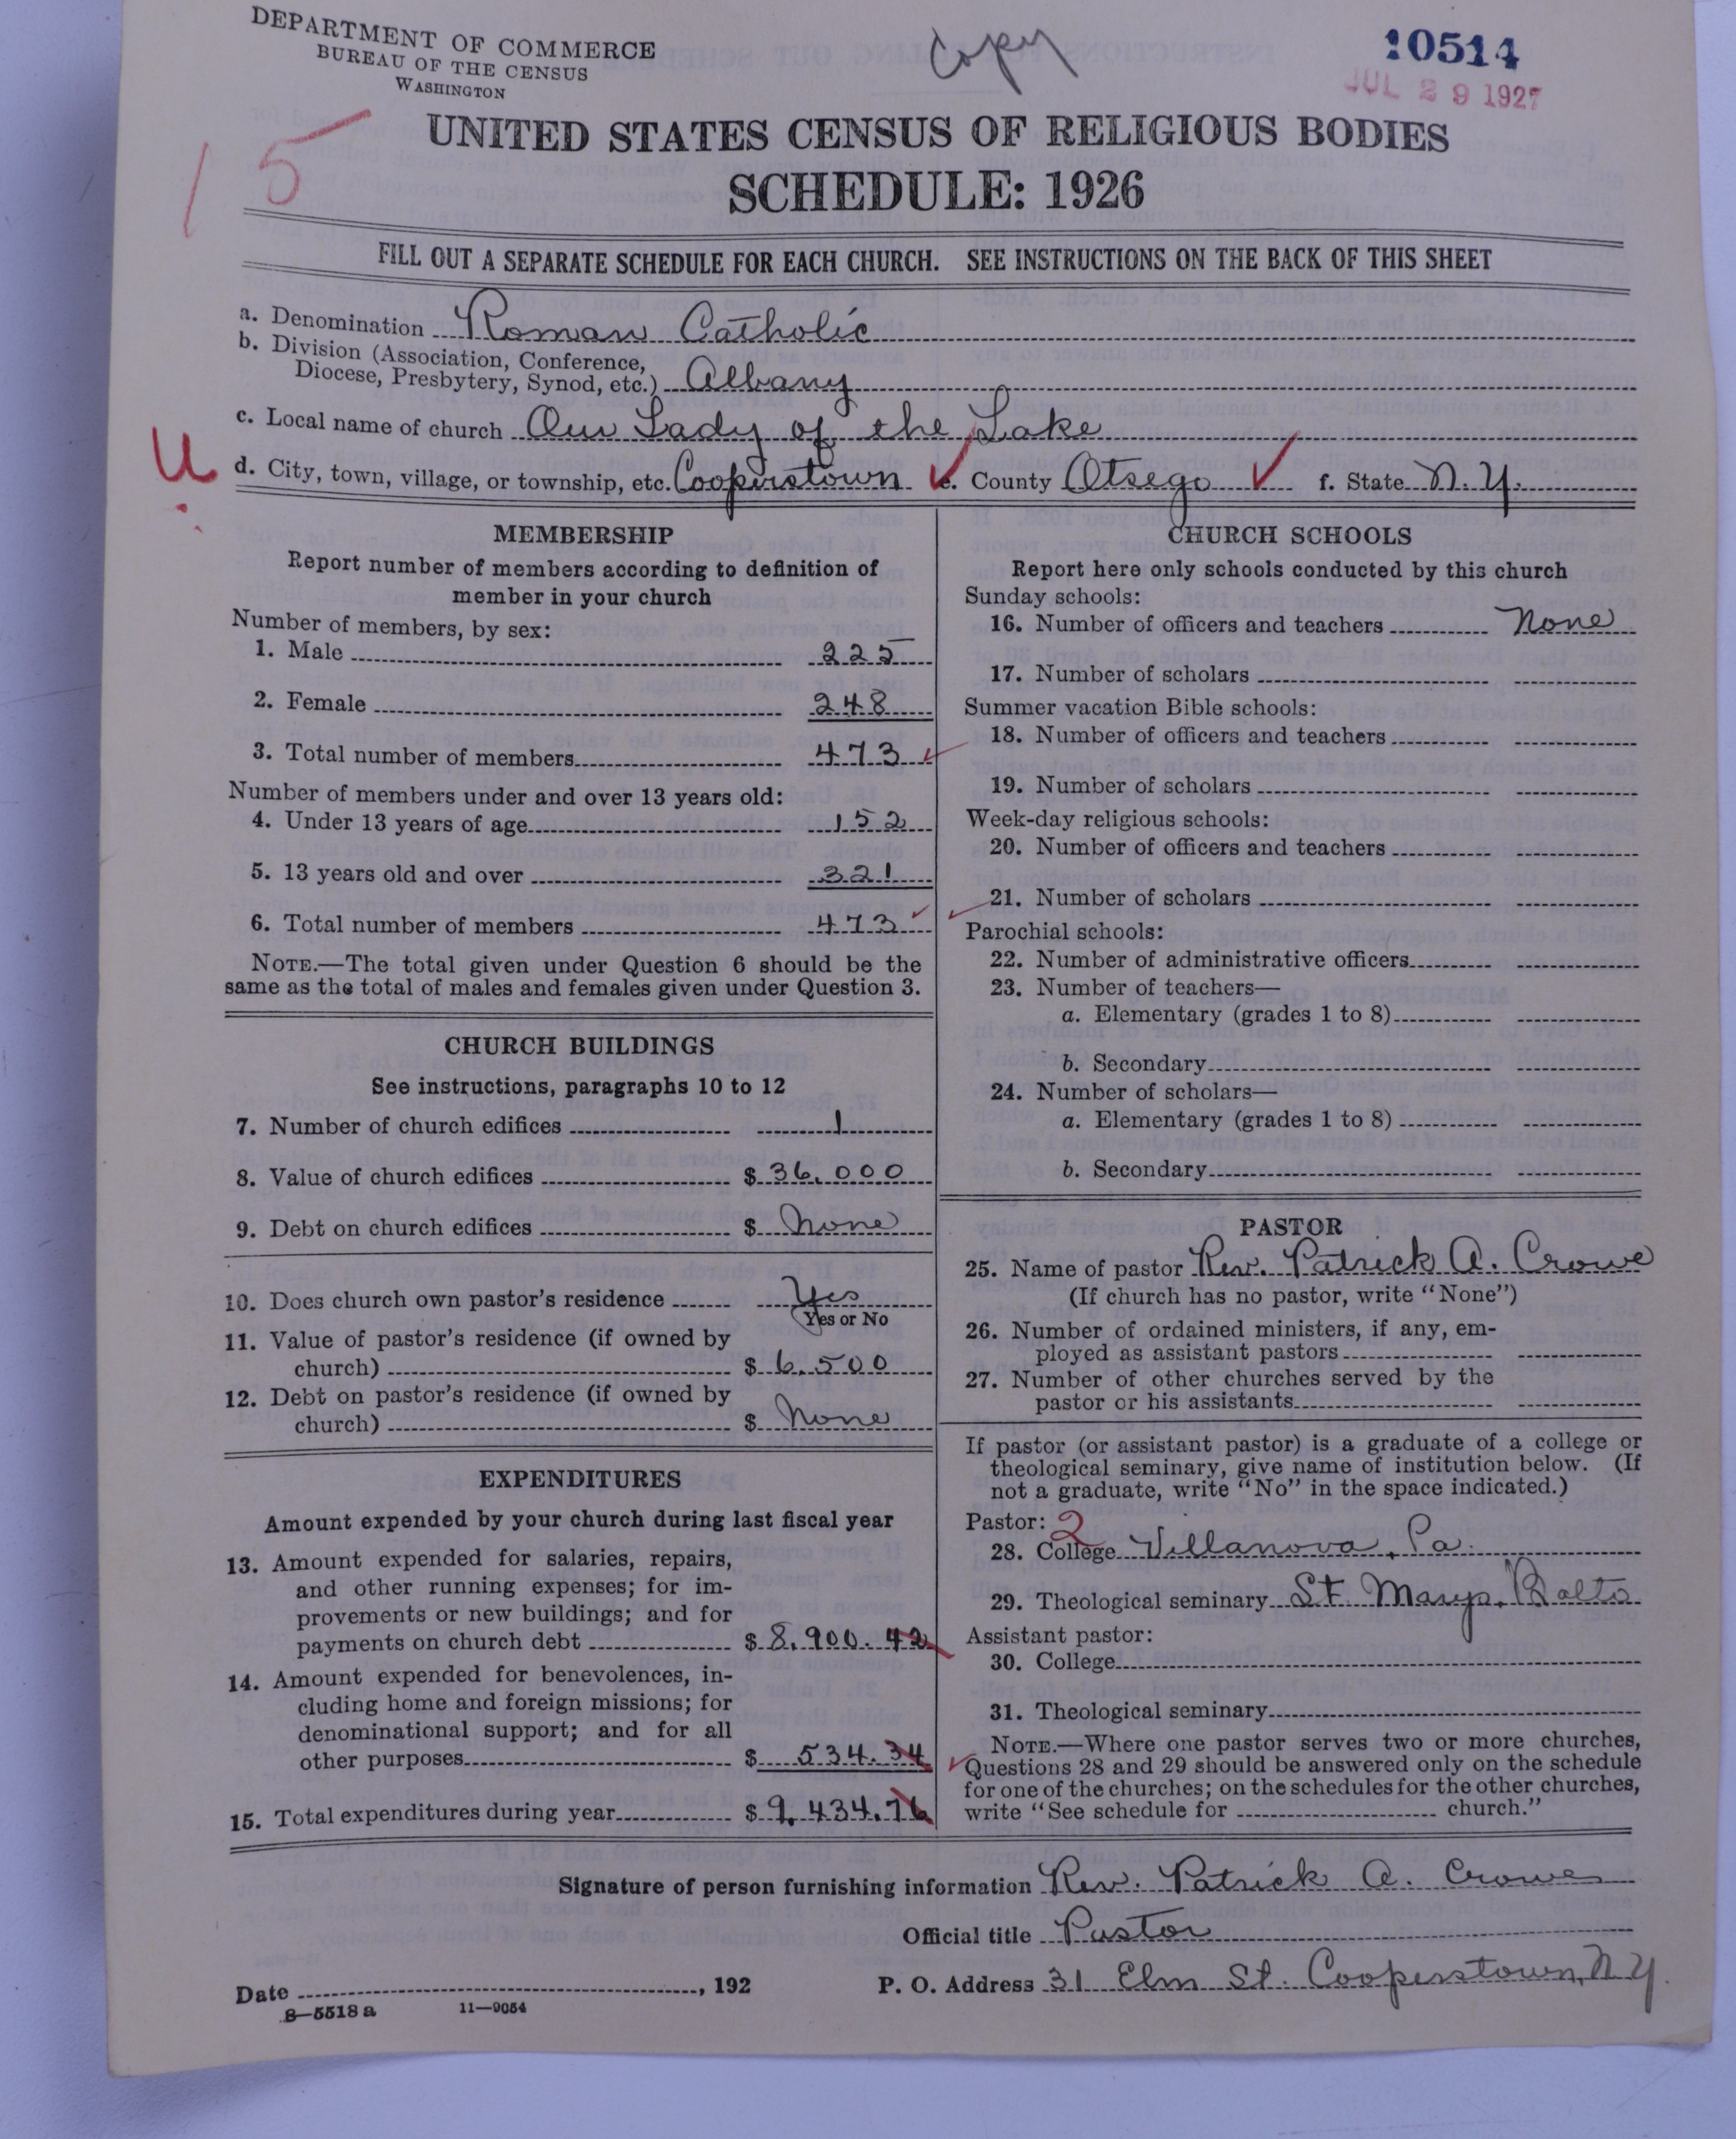 DEPARTMENT OF COMMERCE
BUREAU OF THE CENSUS
WASHINGTON
Copy
10514
JUL 29 1927
15
UNITED STATES CENSUS OF RELIGIOUS BODIES
SCHEDULE: 1926
FILL OUT A SEPARATE SCHEDULE FOR EACH CHURCH. SEE INSTRUCTIONS ON THE BACK OF THIS SHEET
a. Denomination Roman Catholic
b. Division (Association, Conference,
Diocese, Presbytery, Synod, etc.) Albany
c. Local name of church Our Lady of the Lake
U
d. City, town, village, or township, etc. Cooperstown e. County Otsego f. State N.Y.
MEMBERSHIP
Report number of members according to definition of
member in your church
Number of members, by sex:
1. Male 225
2. Female 248
3. Total number of members 473
Number of members under and over 13 years old:
4. Under 13 years of age 152
5. 13 years old and over 321
6. Total number of members 473
NOTE.—The total given under Question 6 should be the
same as the total of males and females given under Question 3.
CHURCH BUILDINGS
See instructions, paragraphs 10 to 12
7. Number of church edifices 1
8. Value of church edifices $ 36,000
9. Debt on church edifices $ None
10. Does church own pastor's residence Yes
Yes or No
11. Value of pastor's residence (if owned by
church) $ 6,500
12. Debt on pastor's residence (if owned by
church) $ None
EXPENDITURES
Amount expended by your church during last fiscal year
13. Amount expended for salaries, repairs,
and other running expenses; for im-
provements or new buildings; and for
payments on church debt $ 8,900.42
14. Amount expended for benevolences, in-
cluding home and foreign missions; for
denominational support; and for all
other purposes $ 534.34
15. Total expenditures during year $ 9,434.76
CHURCH SCHOOLS
Report here only schools conducted by this church
Sunday schools:
16. Number of officers and teachers None
17. Number of scholars
Summer vacation Bible schools:
18. Number of officers and teachers
19. Number of scholars
Week-day religious schools:
20. Number of officers and teachers
21. Number of scholars
Parochial schools:
22. Number of administrative officers
23. Number of teachers—
a. Elementary (grades 1 to 8)
b. Secondary
24. Number of scholars—
a. Elementary (grades 1 to 8)
b. Secondary
PASTOR
25. Name of pastor Rev. Patrick A. Crowe
(If church has no pastor, write "None")
26. Number of ordained ministers, if any, em-
ployed as assistant pastors
27. Number of other churches served by the
pastor or his assistants
If pastor (or assistant pastor) is a graduate of a college or
theological seminary, give name of institution below. (If
not a graduate, write "No" in the space indicated.)
Pastor: 2
28. College Villanova, Pa.
29. Theological seminary St. Marys. Balto
Assistant pastor:
30. College
31. Theological seminary
NOTE.—Where one pastor serves two or more churches,
Questions 28 and 29 should be answered only on the schedule
for one of the churches; on the schedules for the other churches,
write "See schedule for church."
Signature of person furnishing information Rev. Patrick A. Crowe
Official title Pastor
Date , 192 P. O. Address 31 Elm St. Cooperstown, N.Y.
8—5518 a 11—9054